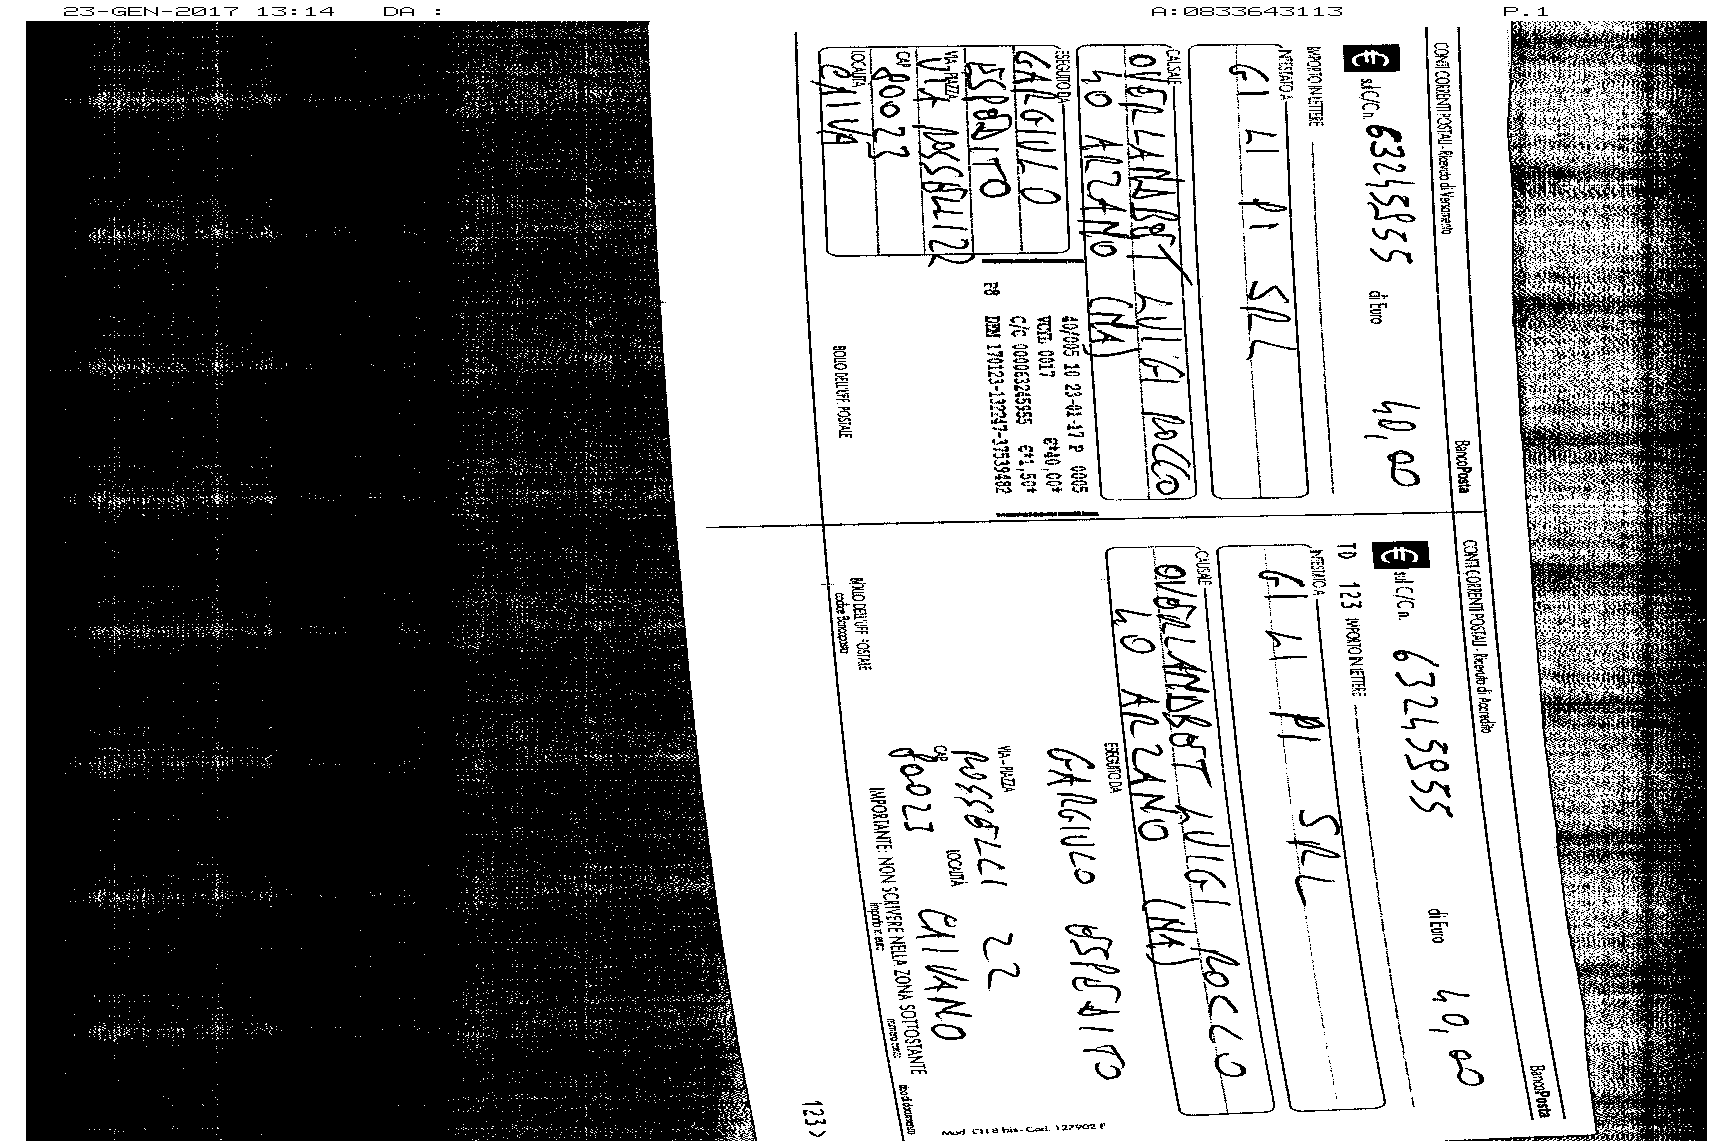 23-GEN-2017 13:14 DA : A:0833643113 P.1
CONTI CORRENTI POSTALI - Ricevuta di Versamento BancoPosta
€ sul C/C n. 63245955 di Euro 40,00
IMPORTO IN LETTERE
INTESTATO A
GI LI PI SRL
CAUSALE
OVERLANDBOT LUIGI ROCCO
40 ARZANO (NA)
ESEGUITO DA
GARGIULO
ESPEDITO
VIA - PIAZZA
VIA ROSSELLI 22
CAP
80023
LOCALITÀ
40/005 10 23-01-17 P 0005
VCYL 0017 €*40,00*
C/C 000063245955 €*1,50*
BOLLO DELL'UFF. POSTALE
CONTI CORRENTI POSTALI - Ricevuta di Accredito BancoPosta
€ sul C/C n. 63245955 di Euro 40,00
TD 123 IMPORTO IN LETTERE
INTESTATO A
GI LI PI SRL
CAUSALE
OVERLANDBOT LUIGI ROCCO
40 ARZANO (NA)
ESEGUITO DA
GARGIULO ESPEDITO
VIA - PIAZZA
ROSSELLI 22
CAP LOCALITÀ
80023 CAIVANO
BOLLO DELL'UFF. POSTALE
codice Bancoposta
IMPORTANTE: NON SCRIVERE NELLA ZONA SOTTOSTANTE
importo in euro numero conto tipo documento
123>